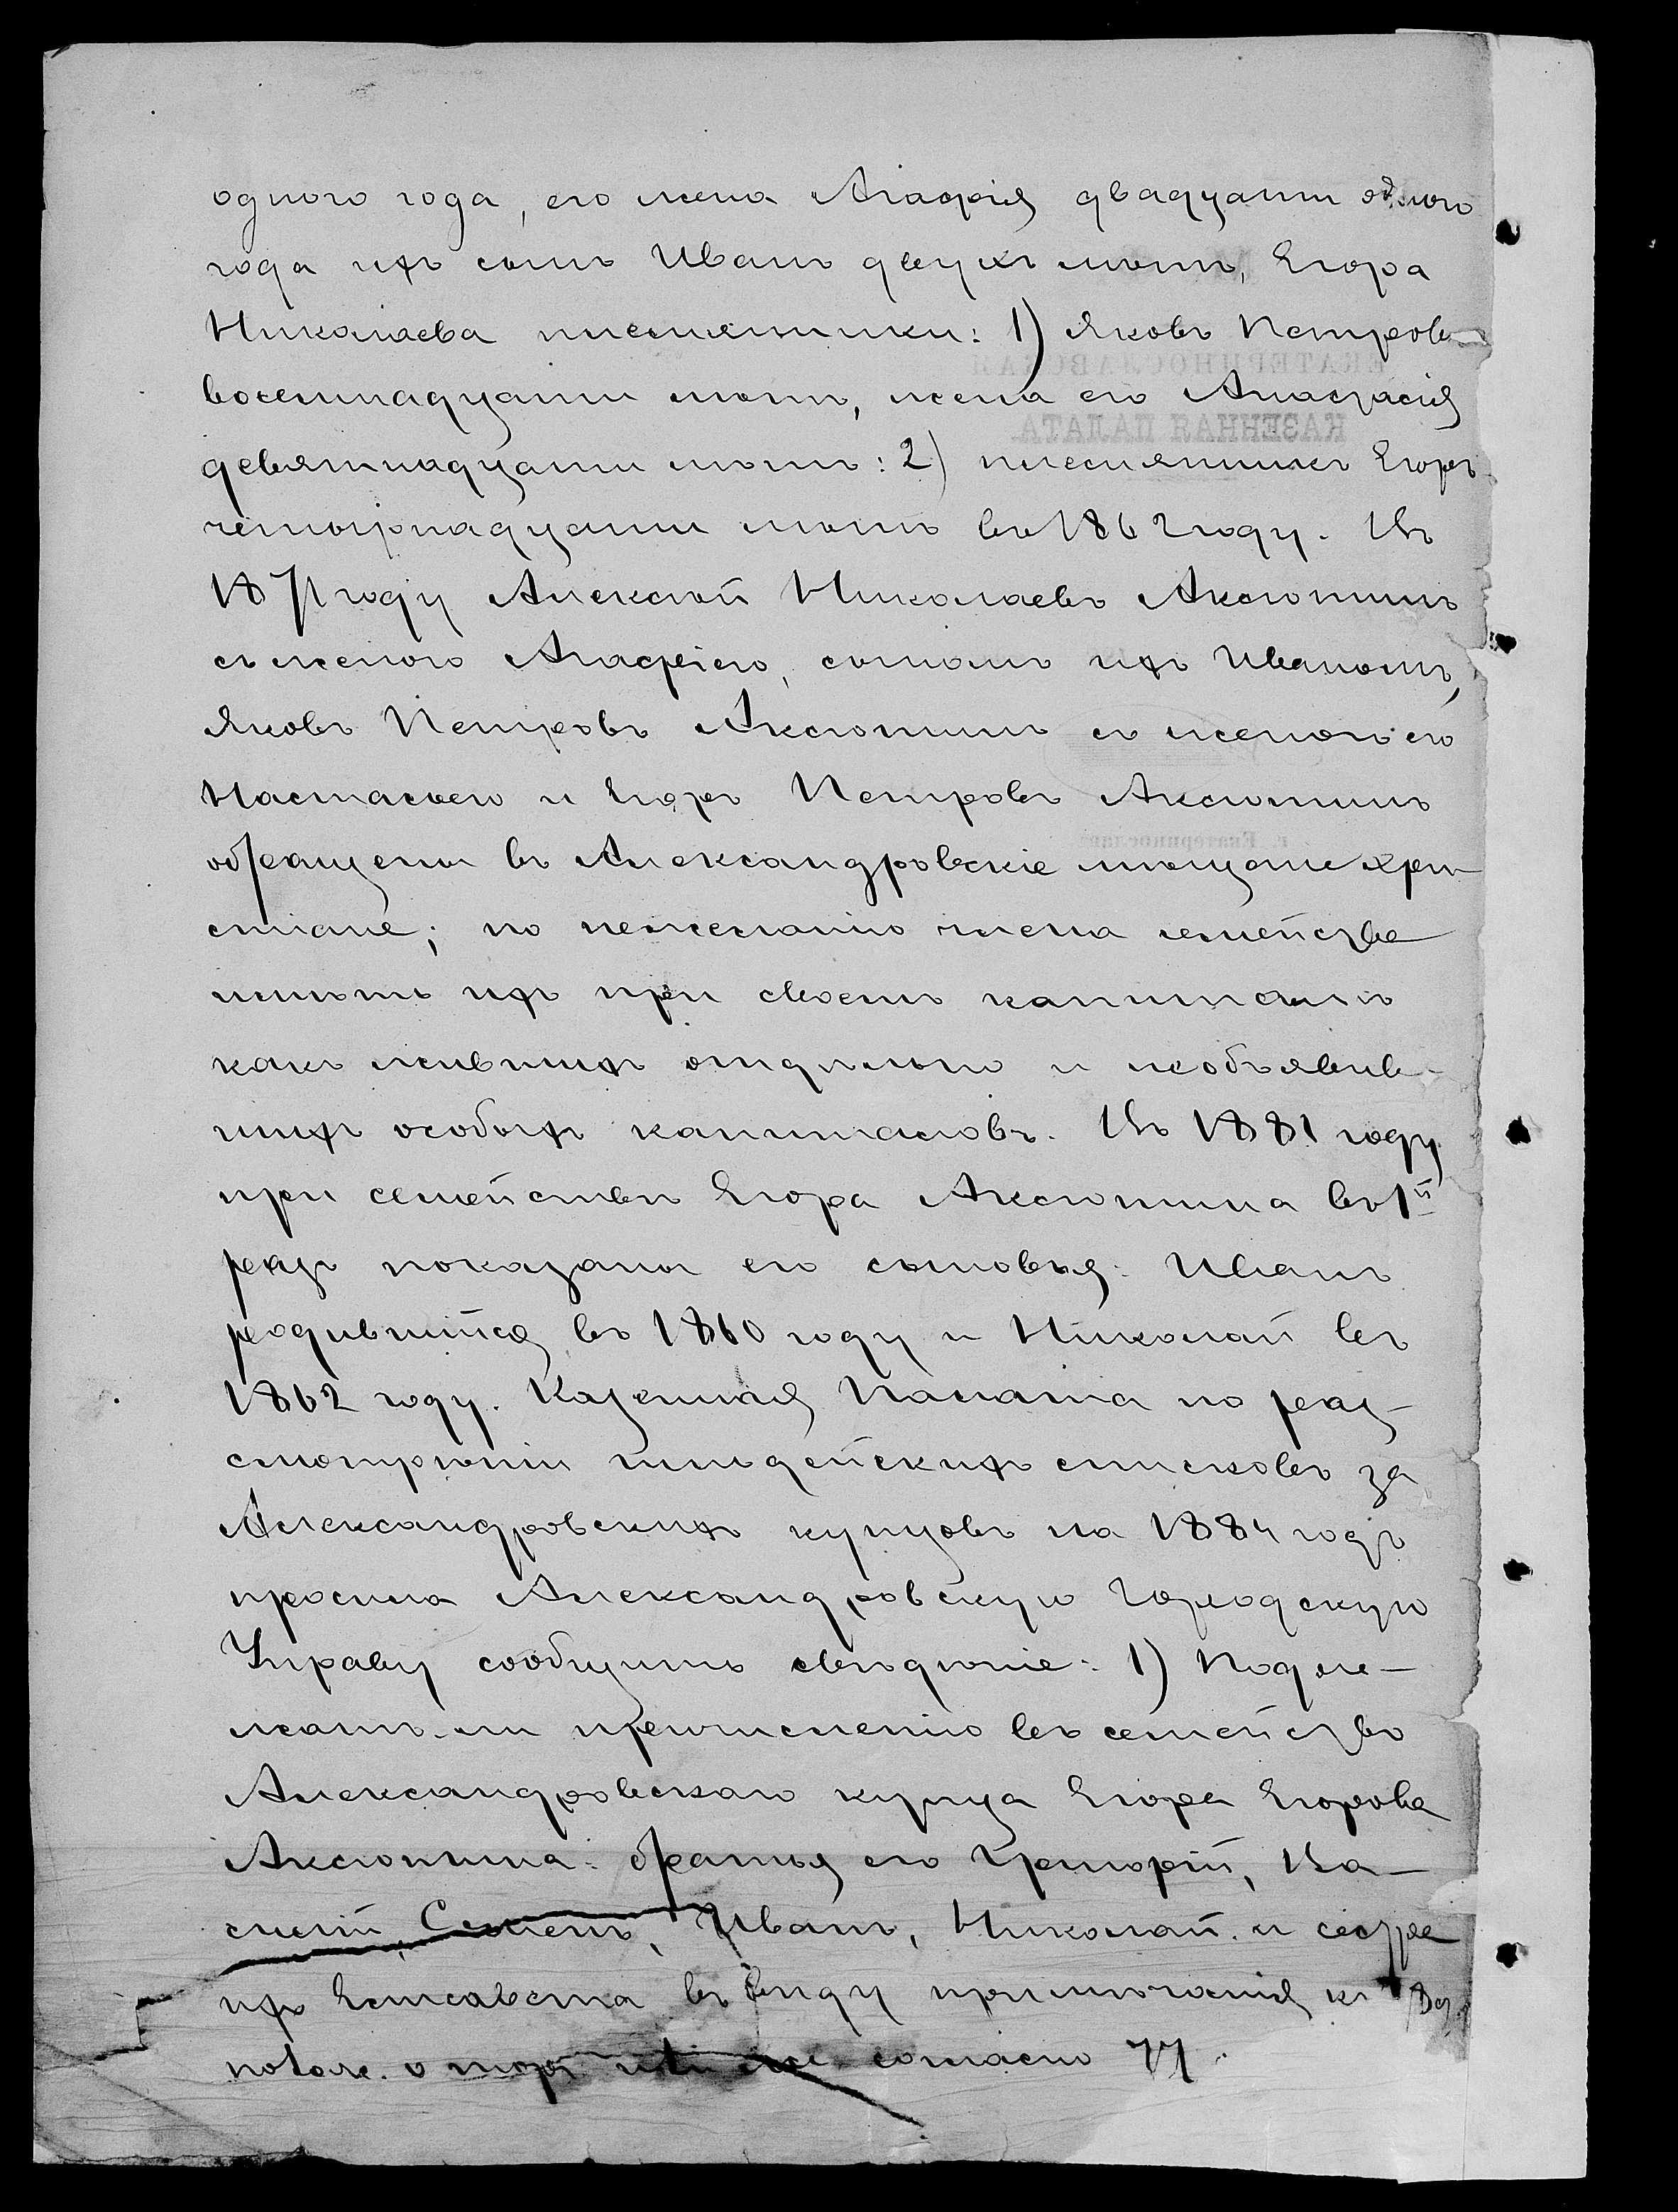 одного года, его жена Агафія двадцати одного
года ихъ сынъ Иванъ двухъ лѣтъ, Егора
Николаева племянники: 1) Яковъ Петровъ
восемнадцати лѣтъ, жена его Анастасія
девятнадцати лѣтъ: 2) племянникъ Егоръ
четырнадцати лѣтъ въ 1862 году. Въ
1871 году Алексѣй Николаевъ Аксютинъ
съ женою Агафіею, сыномъ ихъ Иваномъ,
Яковъ Петровъ Аксютинъ съ женою его
Настасьею и Егоръ Петровъ Аксютинъ
обращены въ Александровскіе мѣщане хри-
стіане; по нежеланію члена семейства
имѣть ихъ при своемъ капиталѣ
какъ жившихъ отдѣльно и необъявив-
шихъ особыхъ капиталовъ. Въ 1881 году
при семействѣ Егора Аксютина въ 1й
разъ показаны его сыновья: Иванъ
родившійся въ 1860 году и Николай въ
1862 году. Казенная Палата по раз-
смотрѣніи гильдейскихъ списковъ за
Александровскихъ купцовъ на 1884 годъ
просила Александровскую Городскую
Управу сообщить свѣдѣніе: 1) Подле-
жатъ-ли причисленію въ семейство
Александровскаго купца Егора Егорова
Аксютина: братья его Григорій, Ва-
силій, Семенъ, Иванъ, Николай и сестра
ихъ Елисавета въ виду примѣчанія къ
о торг согласно 77.
КАЗЕННАЯ ПАЛАТА
ЕКАТЕРИНОСЛАВСКАЯ
г. Екатеринослав